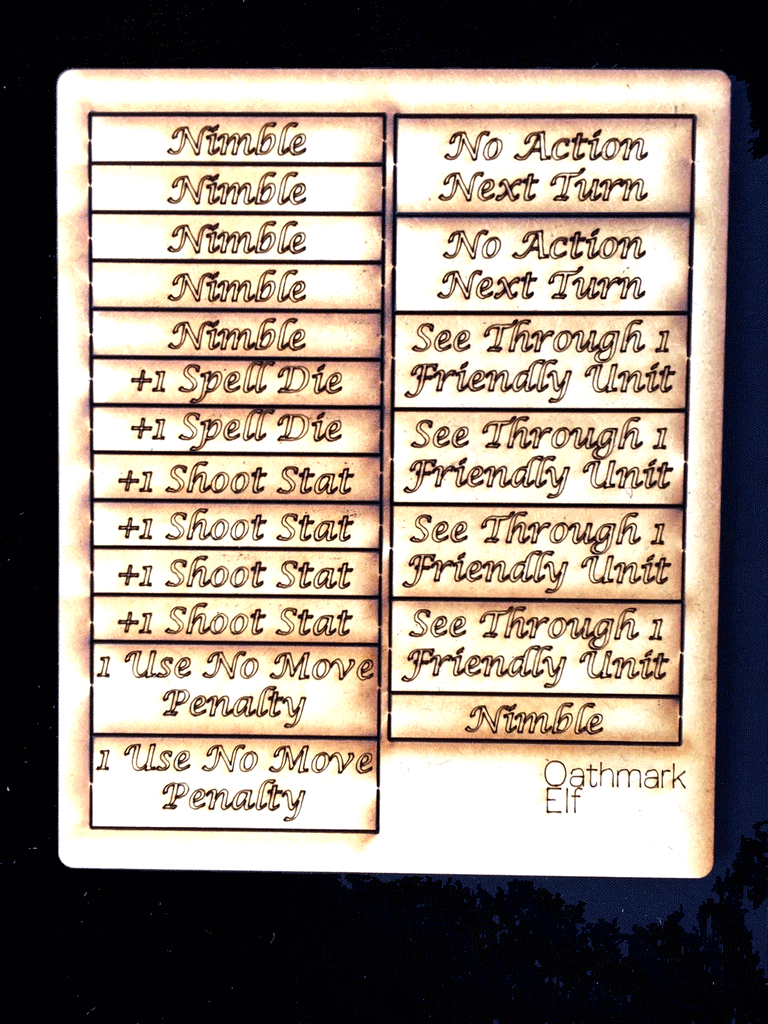 Nimble
Nimble
Nimble
Nimble
Nimble
+1 Spell Die
+1 Spell Die
+1 Shoot Stat
+1 Shoot Stat
+1 Shoot Stat
+1 Shoot Stat
1 Use No Move
Penalty
1 Use No Move
Penalty
No Action
Next Turn
No Action
Next Turn
See Through 1
Friendly Unit
See Through 1
Friendly Unit
See Through 1
Friendly Unit
See Through 1
Friendly Unit
Nimble
Oathmark
Elf